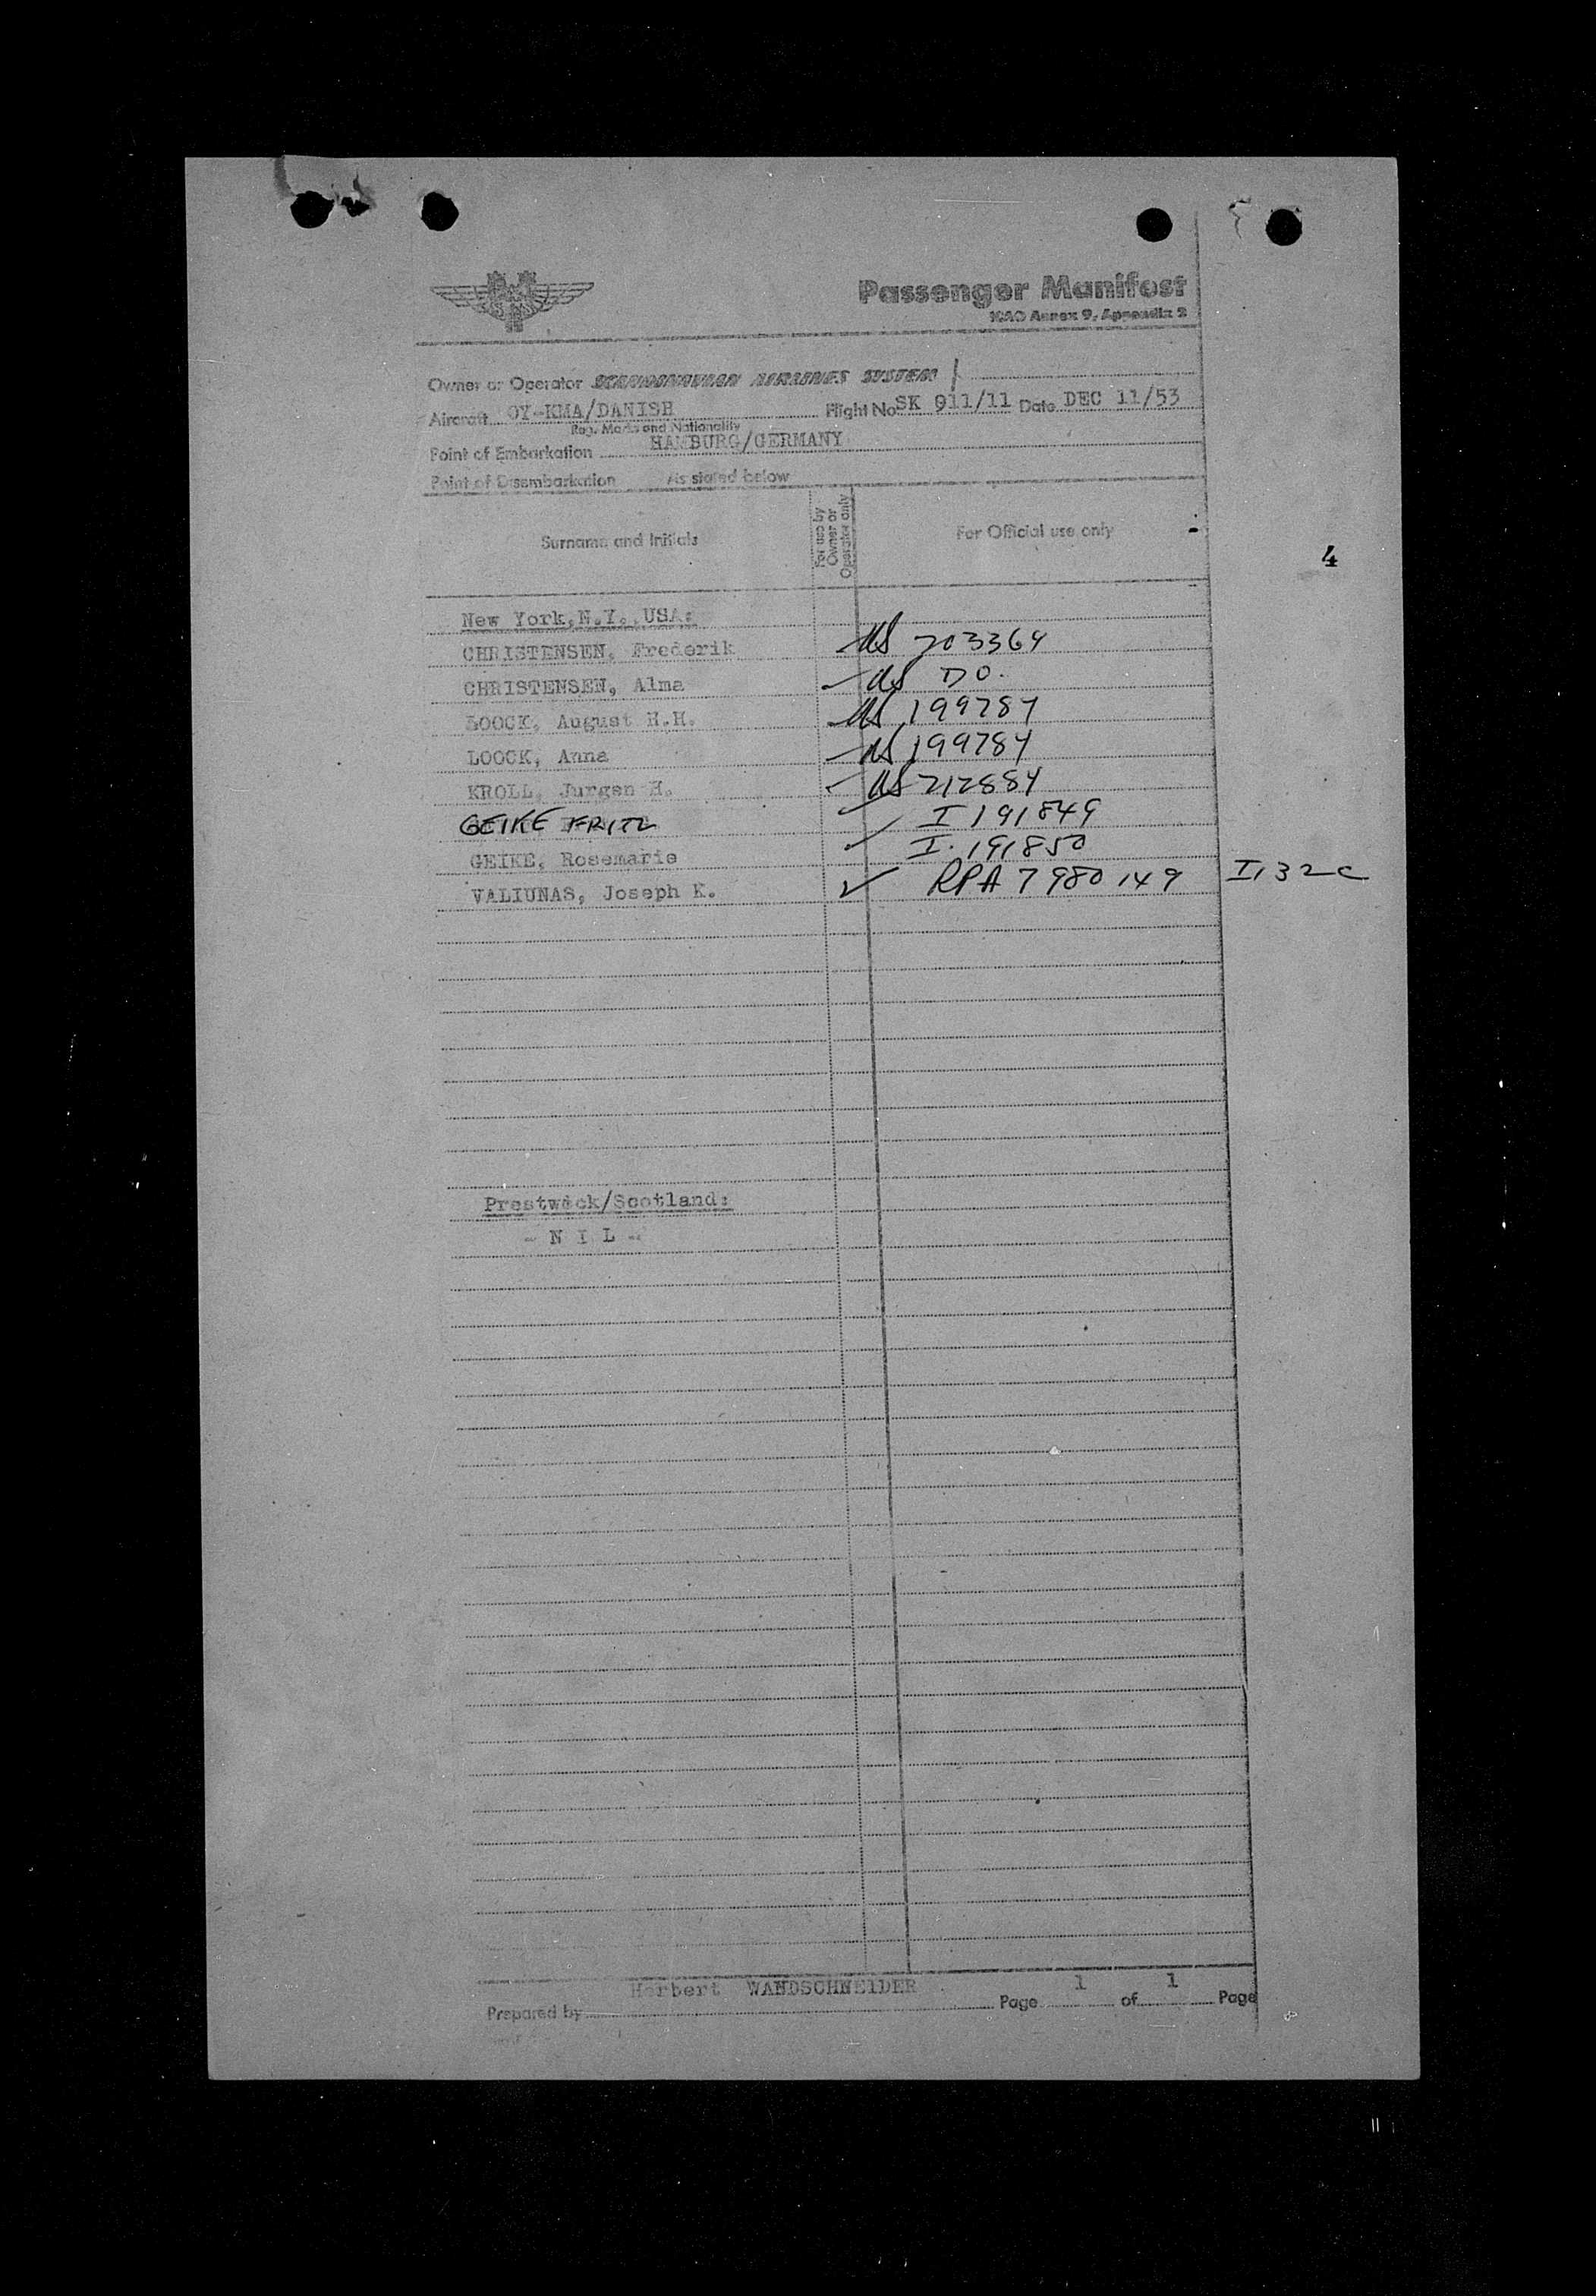 Passenger Manifest
ICAO Annex 9, Appendix 2
Owner or Operator SCANDINAVIAN AIRLINES SYSTEM
Aircraft OY-KMA/DANISH Flight No SK 911/11 Date DEC 11/53
Reg. Marks and Nationality
Point of Embarkation HAMBURG/GERMANY
Point of Disembarkation As stated below
Surname and Initials For use by Owner or Operator only For Official use only
4
New York, N.Y., USA:
CHRISTENSEN, Frederik US 203364
CHRISTENSEN, Alma US DO.
LOOCK, August H.H. US 199784
LOOCK, Anna US 199784
KROLL, Jurgen H. US 212884
GEIKE FRITZ I 191849
GEIKE, Rosemarie I. 191850
VALIUNAS, Joseph K. RPA 7980149 I, 32c
Prestwick/Scotland:
- N I L -
Prepared by Herbert WANDSCHNEIDER Page 1 of 1 Page